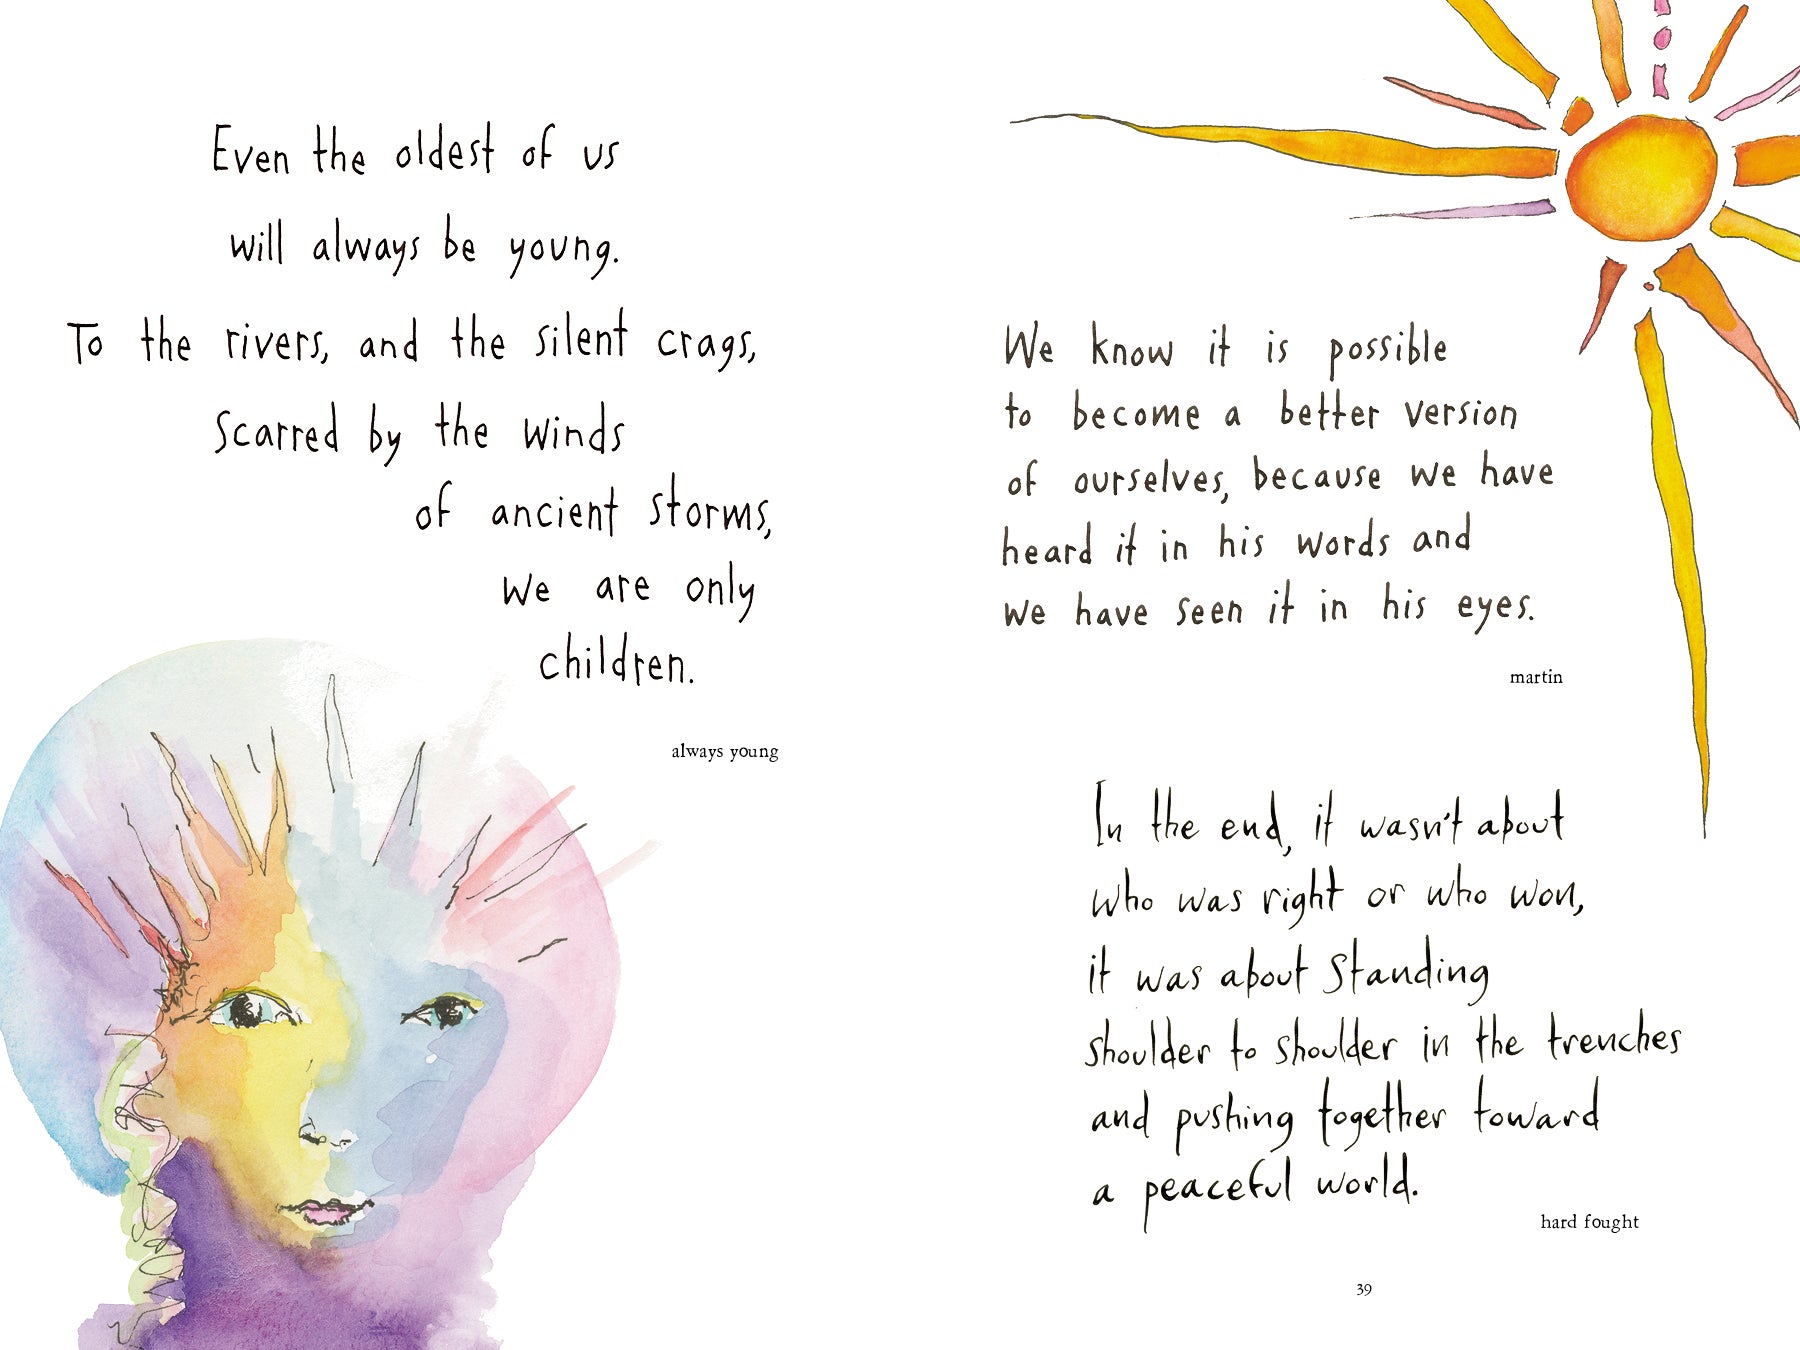 Even the oldest of us
will always be young.
To the rivers, and the silent crags,
Scarred by the winds
of ancient storms,
we are only
children.
always young
We know it is possible
to become a better version
of ourselves, because we have
heard it in his words and
we have seen it in his eyes.
martin
In the end, it wasn't about
who was right or who won,
it was about standing
shoulder to shoulder in the trenches
and pushing together toward
a peaceful world.
hard fought
39